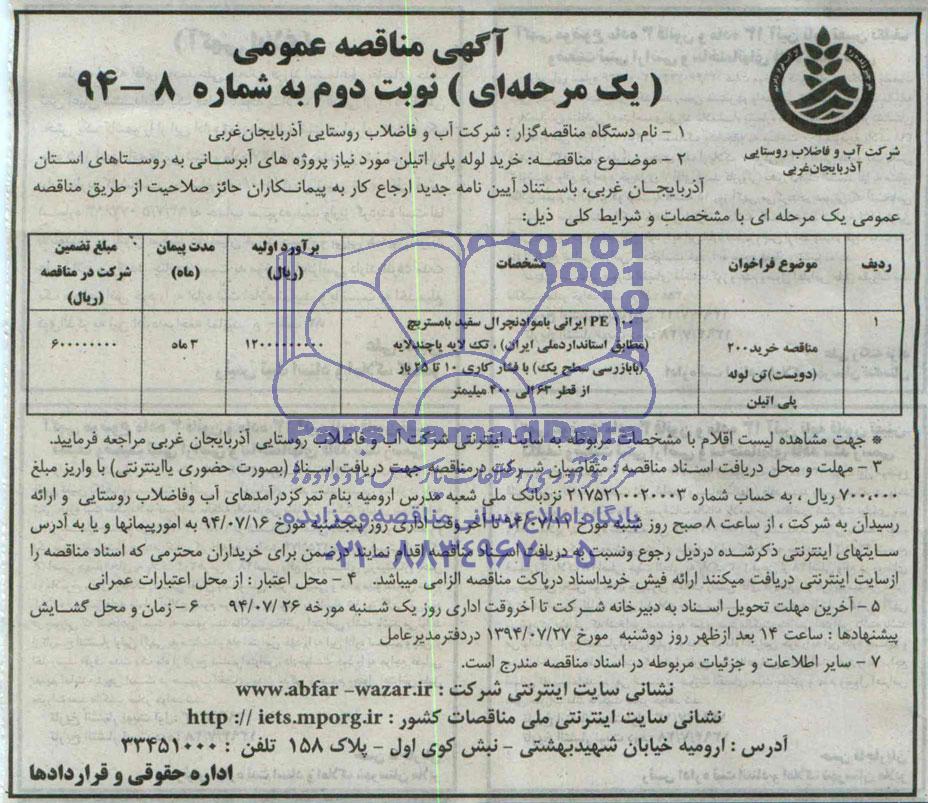 آگهی مناقصه عمومی
( یک مرحله‌ای ) نوبت دوم به شماره ۸ – ۹۴
شرکت آب و فاضلاب روستایی
آذربایجان‌غربی
۱ – نام دستگاه مناقصه‌گزار : شرکت آب و فاضلاب روستایی آذربایجان‌غربی
۲ – موضوع مناقصه: خرید لوله پلی اتیلن مورد نیاز پروژه های آبرسانی به روستاهای استان
آذربایجان غربی، باستناد آیین نامه جدید ارجاع کار به پیمانکاران حائز صلاحیت از طریق مناقصه
عمومی یک مرحله ای با مشخصات و شرایط کلی ذیل:
ردیف موضوع فراخوان مشخصات برآورد اولیه (ریال) مدت پیمان (ماه) مبلغ تضمین شرکت در مناقصه (ریال)
۱
مناقصه خرید۲۰۰
(دویست)تن لوله
پلی اتیلن
PE ۱۰۰ ایرانی باموادنچرال سفید بامستربچ
(مطابق استانداردملی ایران) ، تک لایه یاچندلایه
(بابازرسی سطح یک) با فشار کاری ۱۰ تا ۲۵ بار
از قطر ۶۳ الی ۴۰۰ میلیمتر
۱۲۰۰۰۰۰۰۰۰۰
۳ ماه
۶۰۰۰۰۰۰۰۰
* جهت مشاهده لیست اقلام با مشخصات مربوطه به سایت اینترنتی شرکت آب و فاضلاب روستایی آذربایجان غربی مراجعه فرمایید.
۳ – مهلت و محل دریافت اسناد مناقصه : متقاضیان شرکت درمناقصه جهت دریافت اسناد (بصورت حضوری یااینترنتی) با واریز مبلغ
۷۰۰،۰۰۰ ریال ، به حساب شماره ۲۱۷۵۲۱۰۰۲۰۰۰۳ نزدبانک ملی شعبه مدرس ارومیه بنام تمرکزدرآمدهای آب وفاضلاب روستایی و ارائه
رسیدآن به شرکت ، از ساعت ۸ صبح روز شنبه مورخ ۹۴/۰۷/۱۱ تا آخروقت اداری روز پنجشنبه مورخ ۹۴/۰۷/۱۶ به امورپیمانها و یا به آدرس
سایتهای اینترنتی ذکرشده درذیل رجوع ونسبت به دریافت اسناد مناقصه اقدام نمایند درضمن برای خریداران محترمی که اسناد مناقصه را
ازسایت اینترنتی دریافت میکنند ارائه فیش خریداسناد درپاکت مناقصه الزامی میباشد. ۴ – محل اعتبار : از محل اعتبارات عمرانی
۵ – آخرین مهلت تحویل اسناد به دبیرخانه شرکت تا آخروقت اداری روز یک شنبه مورخه ۹۴/۰۷/۲۶ ۶ – زمان و محل گشایش
پیشنهادها : ساعت ۱۴ بعد ازظهر روز دوشنبه مورخ ۱۳۹۴/۰۷/۲۷ دردفترمدیرعامل
۷ – سایر اطلاعات و جزئیات مربوطه در اسناد مناقصه مندرج است.
نشانی سایت اینترنتی شرکت : www.abfar –wazar.ir
نشانی سایت اینترنتی ملی مناقصات کشور : http :// iets.mporg.ir
آدرس : ارومیه خیابان شهیدبهشتی – نبش کوی اول – پلاک ۱۵۸ تلفن : ۳۳۴۵۱۰۰۰
اداره حقوقی و قراردادها
ParsNamadData
مرکز فرآوری اطلاعات پارس نماد داده‌ها
پایگاه اطلاع رسانی مناقصه و مزایده
۰۲۱-۸۸۳۴۹۶۷۰-۵